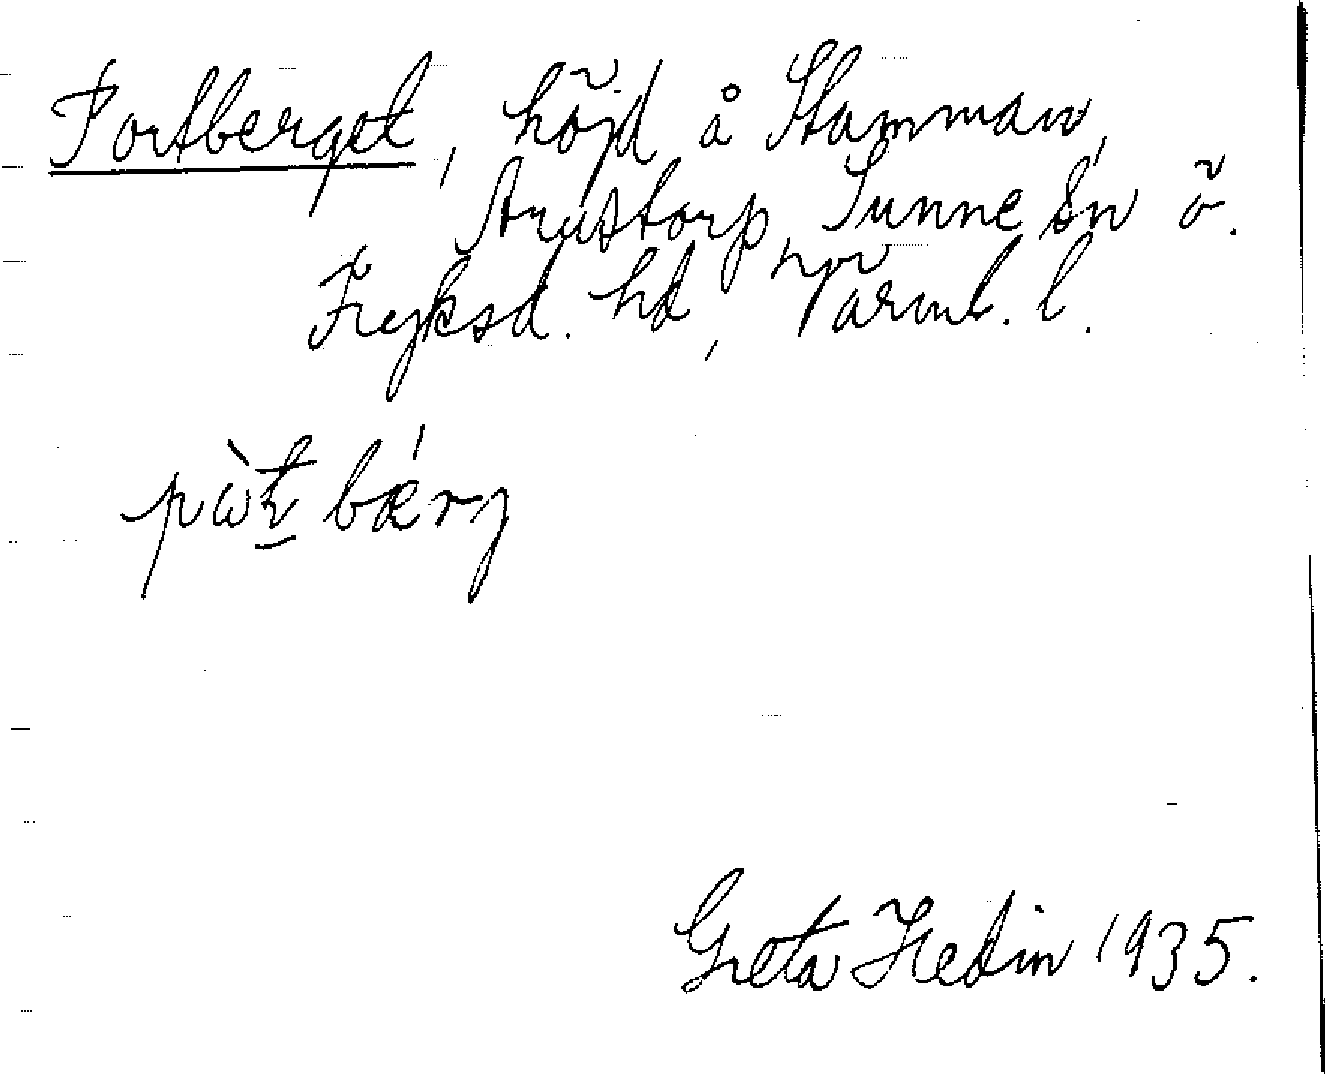 Portberget, höjd å Stamman,
Arustorp, Sunne sn ö.
Fryksd. hd, Värml. l.
pὼt bærj
Greta Hedin 1935.